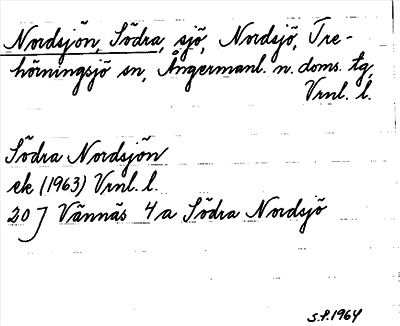 Nordsjön, Södra, sjö, Nordsjö, Tre-
hörningsjö sn, Ångermanl. n. doms. tg,
Vrnl. l.
Södra Nordsjön
ek (1963) Vrnl. l.
20 J Vännäs 4 a Södra Nordsjö
S.P. 1964